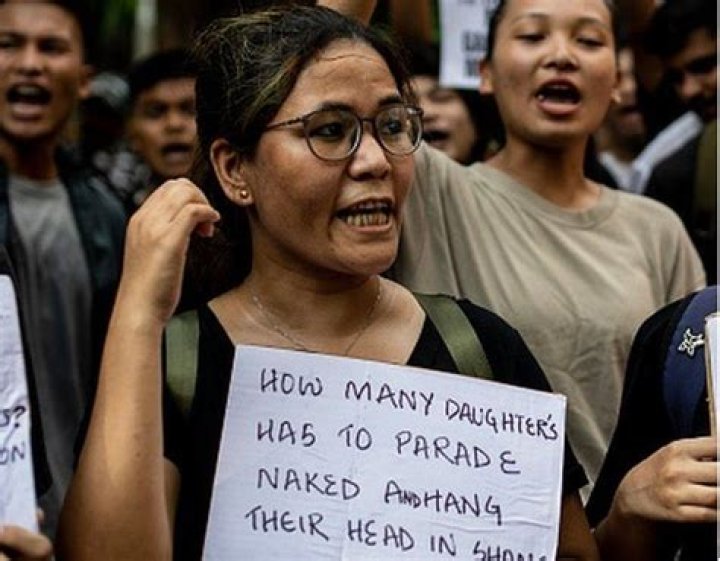 S?
ON
HOW MANY DAUGHTER'S
HAS TO PARADE
NAKED AND HANG
THEIR HEAD IN